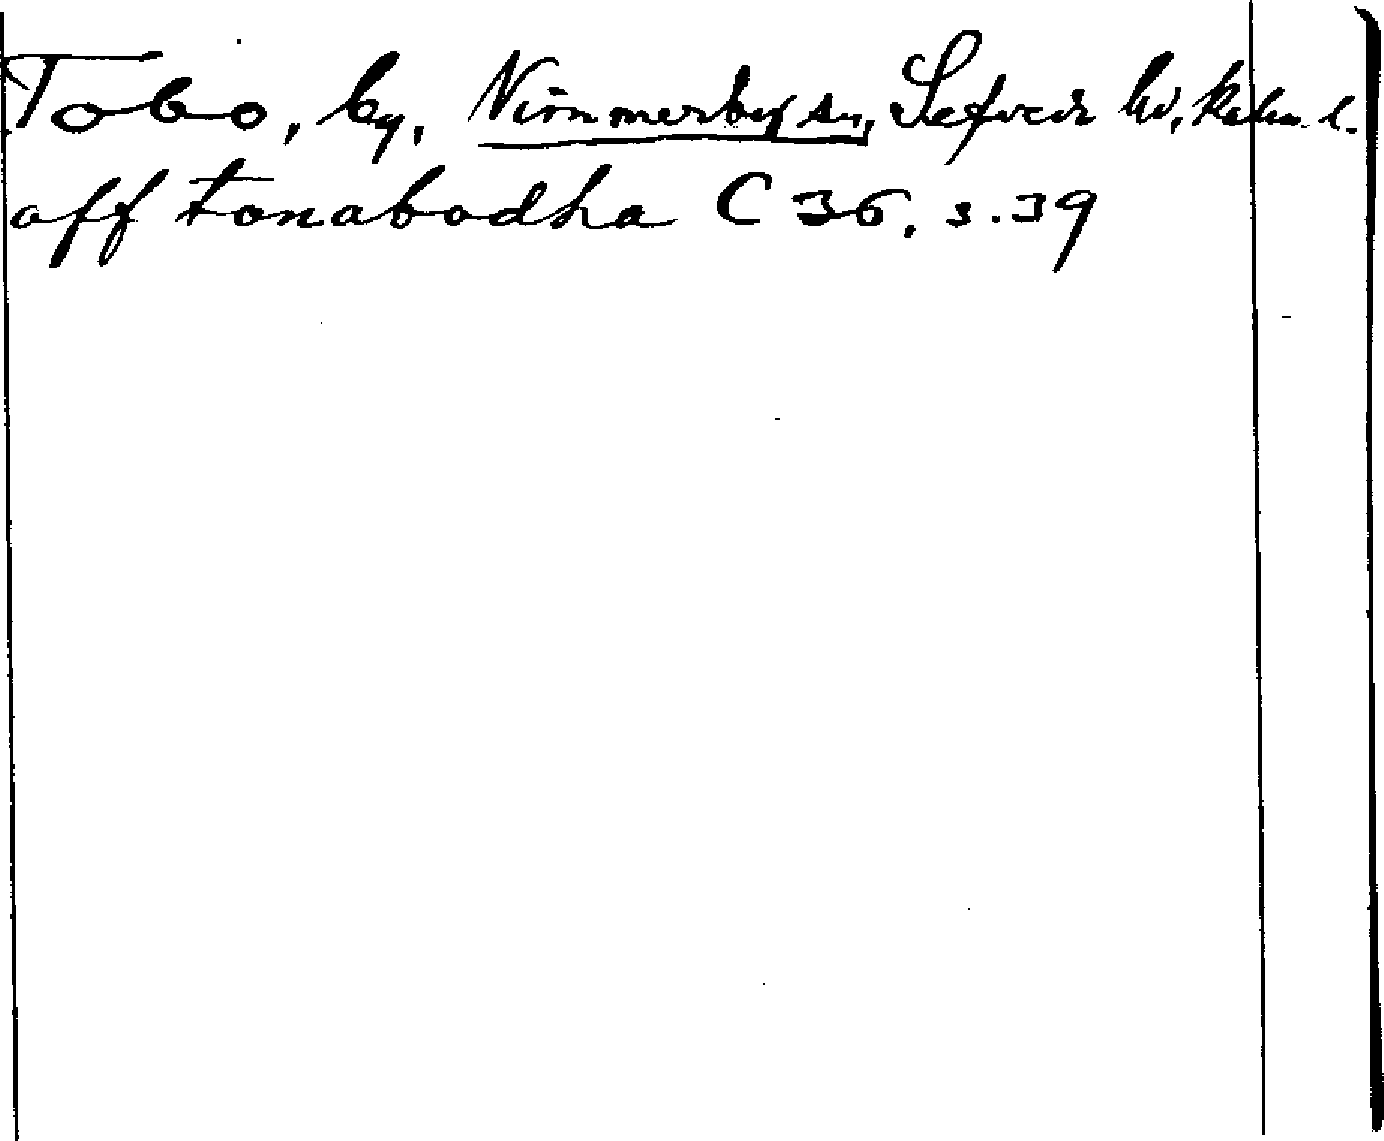 Tobo, by, Vimmerby sn, Sefvede hd, Kalm. l.
aff tonabodha C 36, s. 39